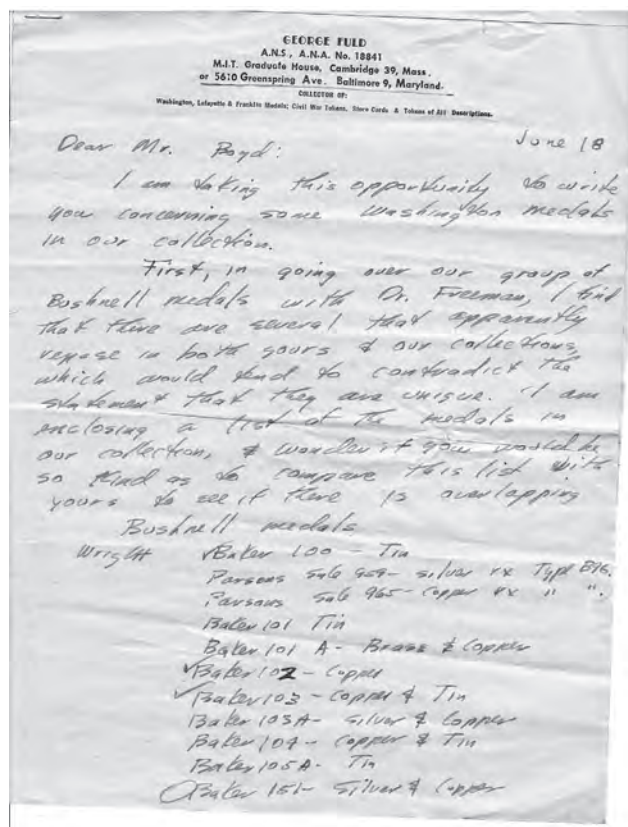 GEORGE FULD
A.N.S, A.N.A. No. 18841
M.I.T. Graduate House, Cambridge 39, Mass.
or 5610 Greenspring Ave. Baltimore 9, Maryland.
COLLECTOR OF:
Washington, Lafayette & Franklin Medals; Civil War Tokens, Store Cards & Tokens of All Descriptions.
June 18
Dear Mr. Boyd:
I am taking this opportunity to write
you concerning some Washington medals
in our collection.
First, in going over our group of
Bushnell medals with Dr. Freeman, I find
that there are several that apparently
repose in both yours & our collections,
which would tend to contradict the
statement that they are unique. I am
enclosing a list of the medals in
our collection, & wonder if you would be
so kind as to compare this list with
yours to see if there is overlapping
Bushnell medals
Wright ✓Baker 100 - Tin
Parsons Sale 959 - silver rx Type B96.
Parsons Sale 965 - Copper rx " ".
Baker 101 Tin
Baker 101 A - Brass & Copper
✓Baker 102 - Copper
✓Baker 103 - Copper & Tin
Baker 103A - Silver & Copper
Baker 104 - Copper & Tin
Baker 105A - Tin
Baker 151 - Silver & Copper